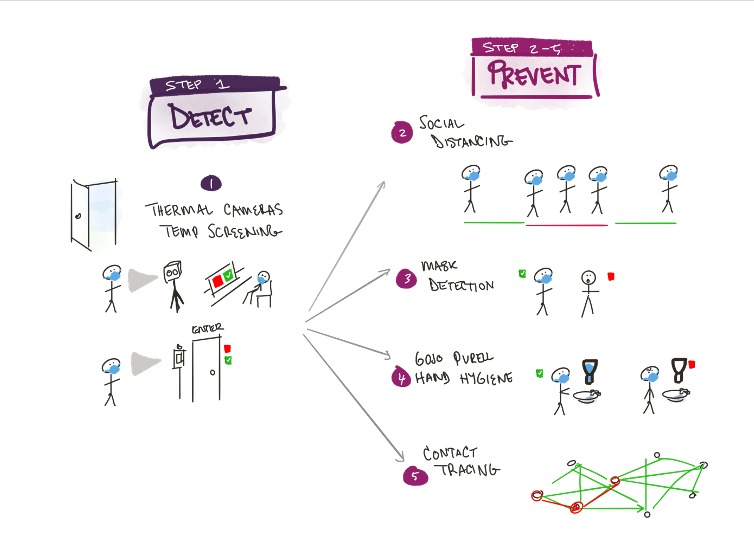 STEP 1
DETECT
1
THERMAL CAMERAS
TEMP SCREENING
ENTER
STEP 2-5
PREVENT
2
SOCIAL
DISTANCING
3
MASK
DETECTION
4
GOJO PURELL
HAND HYGIENE
5
CONTACT
TRACING